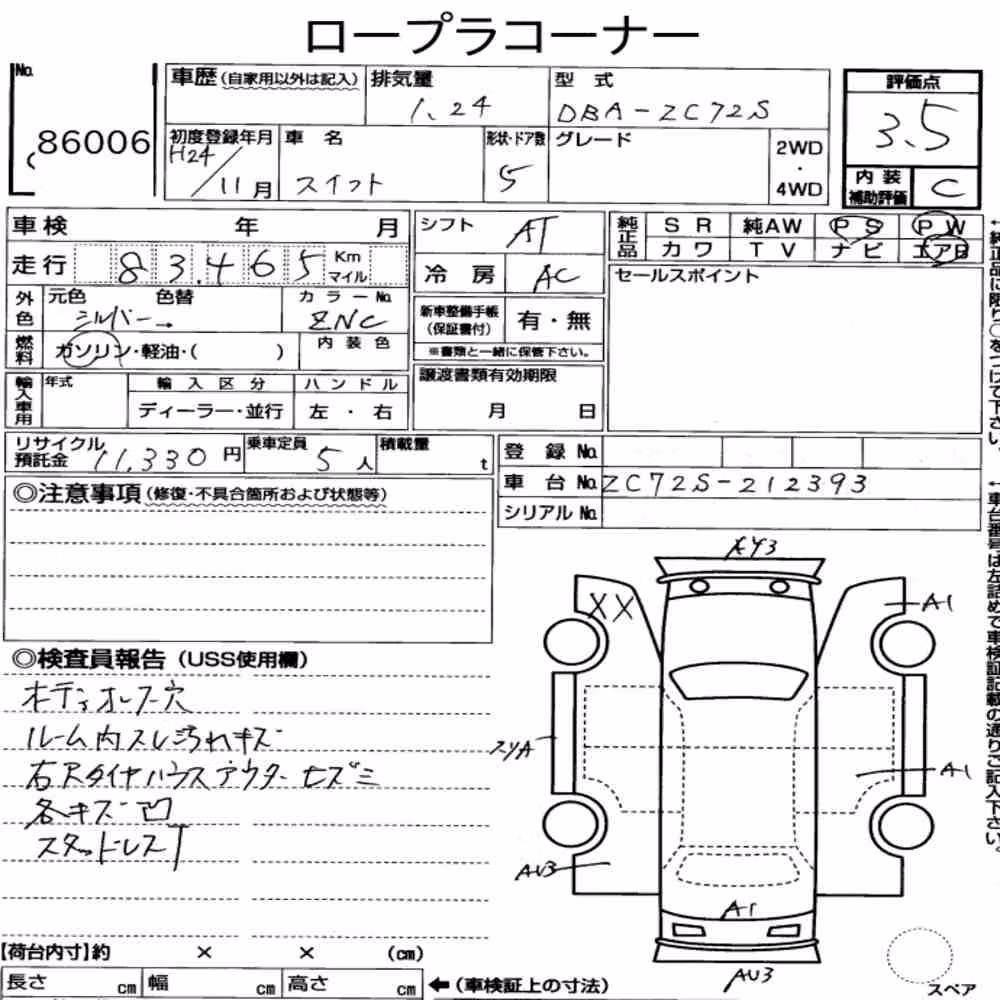 ロープラコーナー
No.
86006
車歴(自家用以外は記入)
排気量
1.24
型式
DBA-ZC72S
評価点
3.5
初度登録年月
H24/11月
車名
スイフト
形状・ドア数
5
グレード
2WD
・
4WD
内装
補助評価
C
車検 年 月
シフト
AT
純正品
SR 純AW PS PW
カワ TV ナビ エアB
走行 83,465 Km
マイル
冷房
AC
セールスポイント
外色
元色 色替
シルバー→
カラーNo.
ZNC
新車整備手帳
(保証書付)
有・無
※書類と一緒に保管下さい。
燃料
ガソリン・軽油・( )
内装色
輸入車用
年式
輸入区分
ディーラー・並行
ハンドル
左・右
譲渡書類有効期限
月 日
リサイクル
預託金 11,330円
乗車定員
5人
積載量
t
登録No.
車台No. ZC72S-212393
シリアルNo.
◎注意事項(修復・不具合箇所および状態等)
◎検査員報告(USS使用欄)
ルーム内スレ汚れキズ
各キズ凹
スタッドレス
XX
A1
A1
A1
AU3
AU3
スペア
【荷台内寸】約 × × (cm)
長さ cm 幅 cm 高さ cm
←(車検証上の寸法)
←純正品に限り○をつけて下さい。
←車台番号は左詰めで車検証記載の通りご記入下さい。